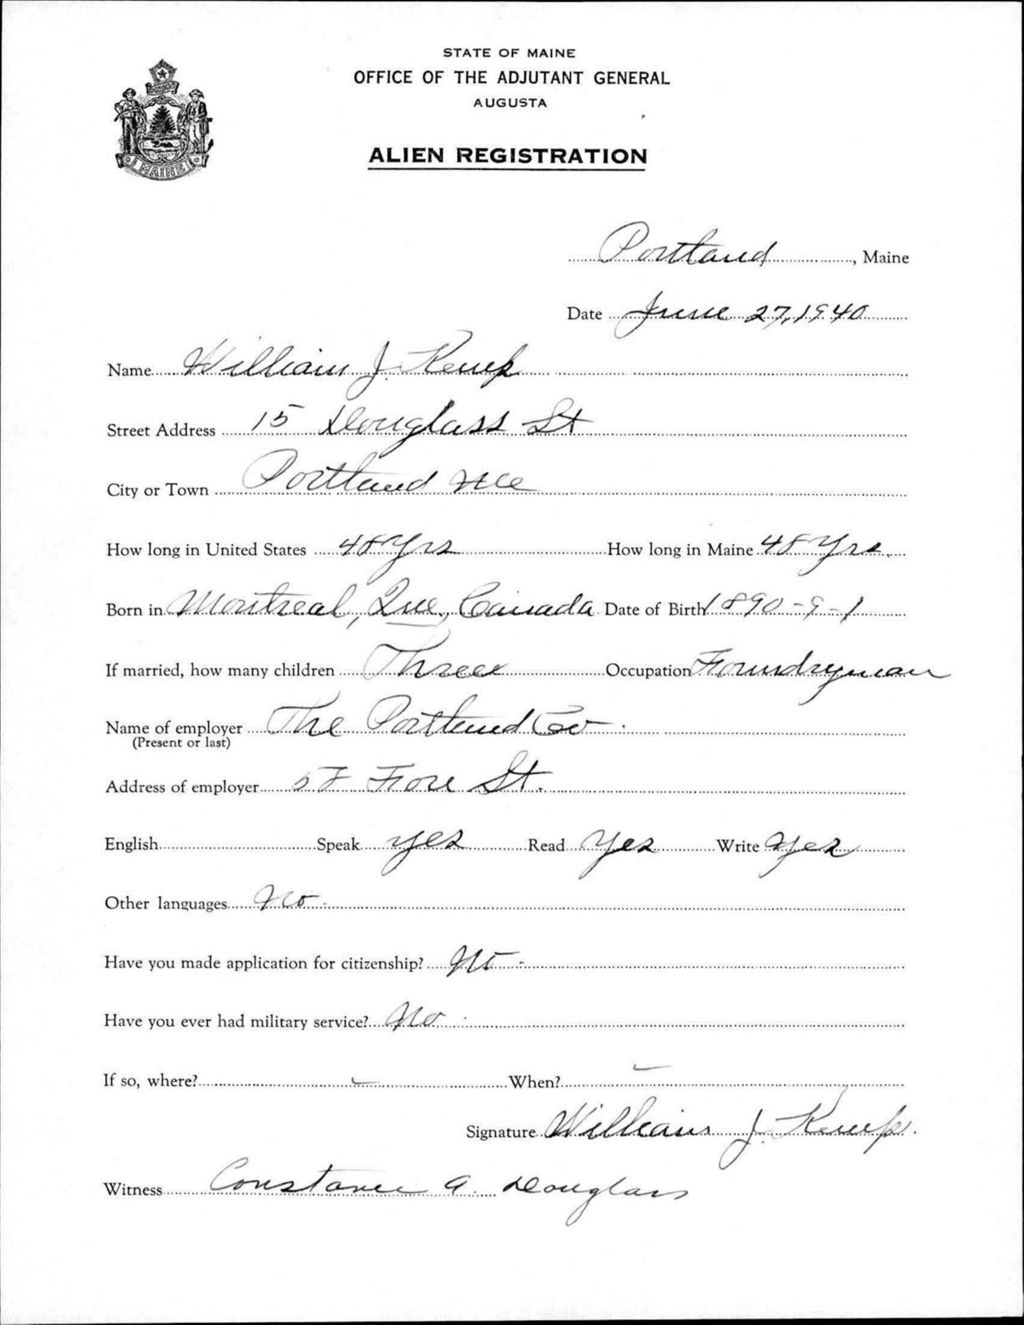 STATE OF MAINE
OFFICE OF THE ADJUTANT GENERAL
AUGUSTA
ALIEN REGISTRATION
MAINE
Portland, Maine
Date June 27, 1940
Name William J. Kemp
Street Address 15 Douglass St
City or Town Portland Me
How long in United States 48 Yrs How long in Maine 48 Yrs.
Born in Montreal, Que., Canada Date of Birth 1890-9-1
If married, how many children Three Occupation Foundryman
Name of employer The Portland Co.
(Present or last)
Address of employer 58 Fore St.
English Speak yes Read Yes Write Yes
Other languages No.
Have you made application for citizenship? No -
Have you ever had military service? No.
If so, where? - When? -
Signature William J. Kemp.
Witness Constance A. Douglass